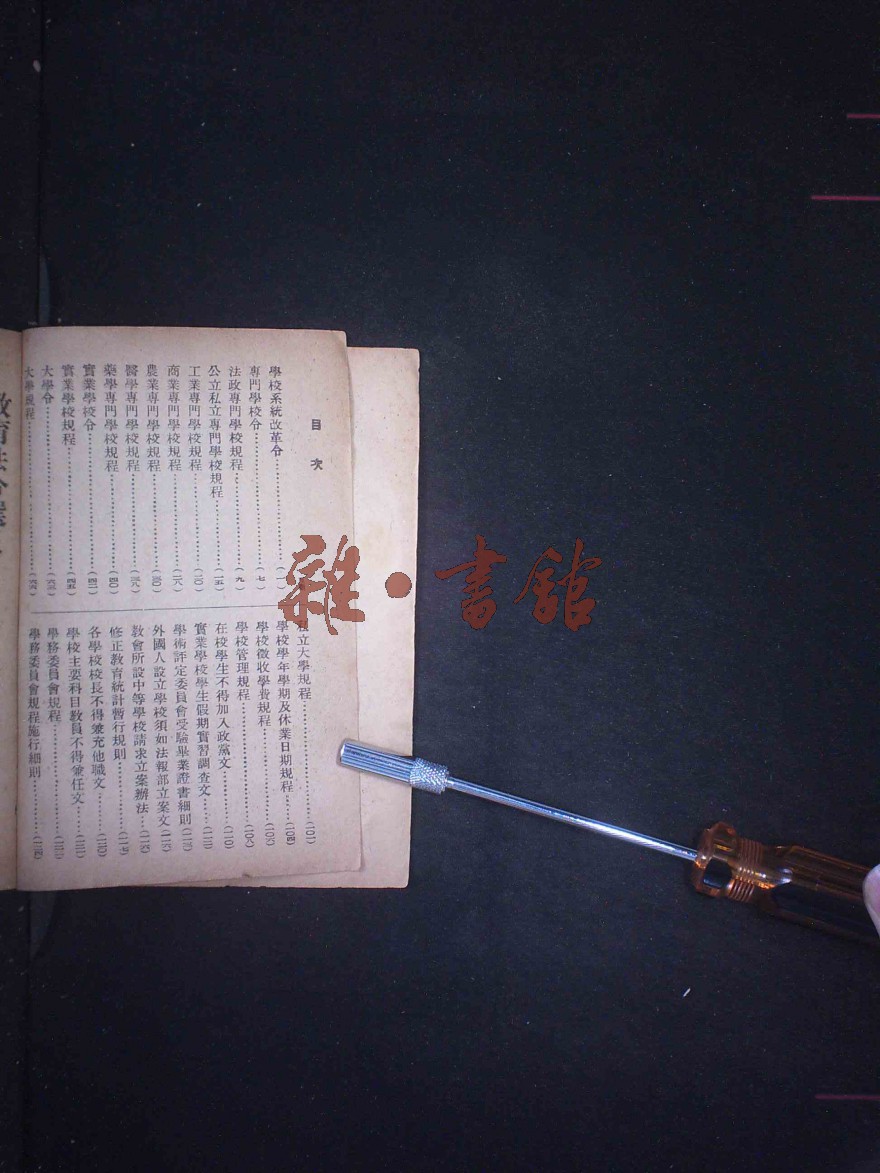 目次
學校系統改革令⋯⋯(一)
專門學校令⋯⋯(七)
法政專門學校規程⋯⋯(九)
公立私立專門學校規程⋯⋯(一五)
工業專門學校規程⋯⋯(二〇)
商業專門學校規程⋯⋯(二八)
農業專門學校規程⋯⋯(三〇)
醫學專門學校規程⋯⋯(三九)
藥學專門學校規程⋯⋯(四〇)
實業學校令⋯⋯(四二)
實業學校規程⋯⋯(四五)
大學令⋯⋯(六三)
大學規程⋯⋯(六六)
私立大學規程⋯⋯(101)
學校學年學期及休業日期規程⋯⋯
學校徵收學費規程⋯⋯
學校管理規程⋯⋯
在校學生不得加入政黨文⋯⋯(110)
實業學校學生假期實習調查文⋯⋯
學術評定委員會受驗畢業證書細則⋯⋯
外國人設立學校須如法報部立案文
教會所設中等學校請求立案辦法⋯⋯
修正教育統計暫行規則⋯⋯
各學校校長不得兼充他職文⋯⋯
學校主要科目教員不得兼任文⋯⋯
學務委員會規程⋯⋯
學務委員會規程施行細則⋯⋯
教育法令選
雜·書館